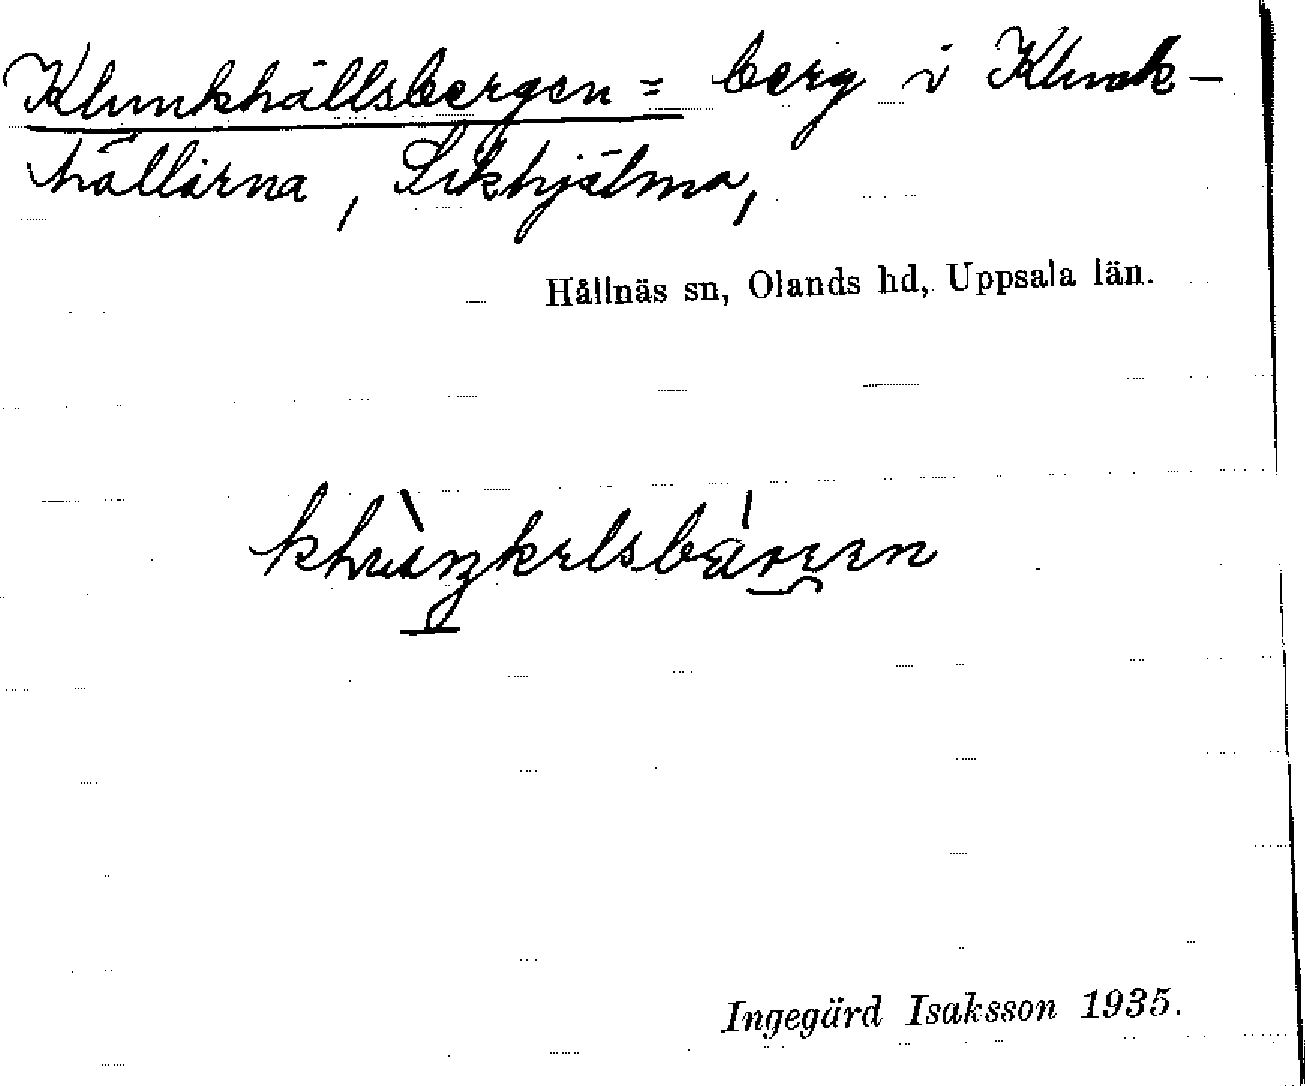 Klunkhällsbergen = berg i Klunk-
hällarna, Sikhjälma,
Hållnäs sn, Olands hd, Uppsala län.
Ingegärd Isaksson 1935.